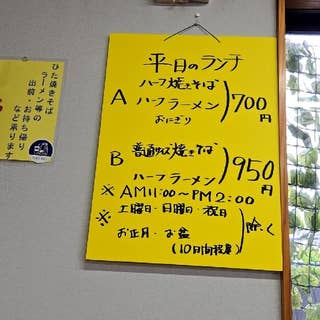 ひた焼きそば
ラーメン等の
出前・お持ち帰り
など承ります
平日のランチ
A ハーフ焼きそば
ハーフラーメン
おにぎり
700円
B 普通サイズ焼きそば
ハーフラーメン
950円
※ AM11:00~PM2:00
※ 土曜日・日曜日・祝日
お正月・お盆
除く